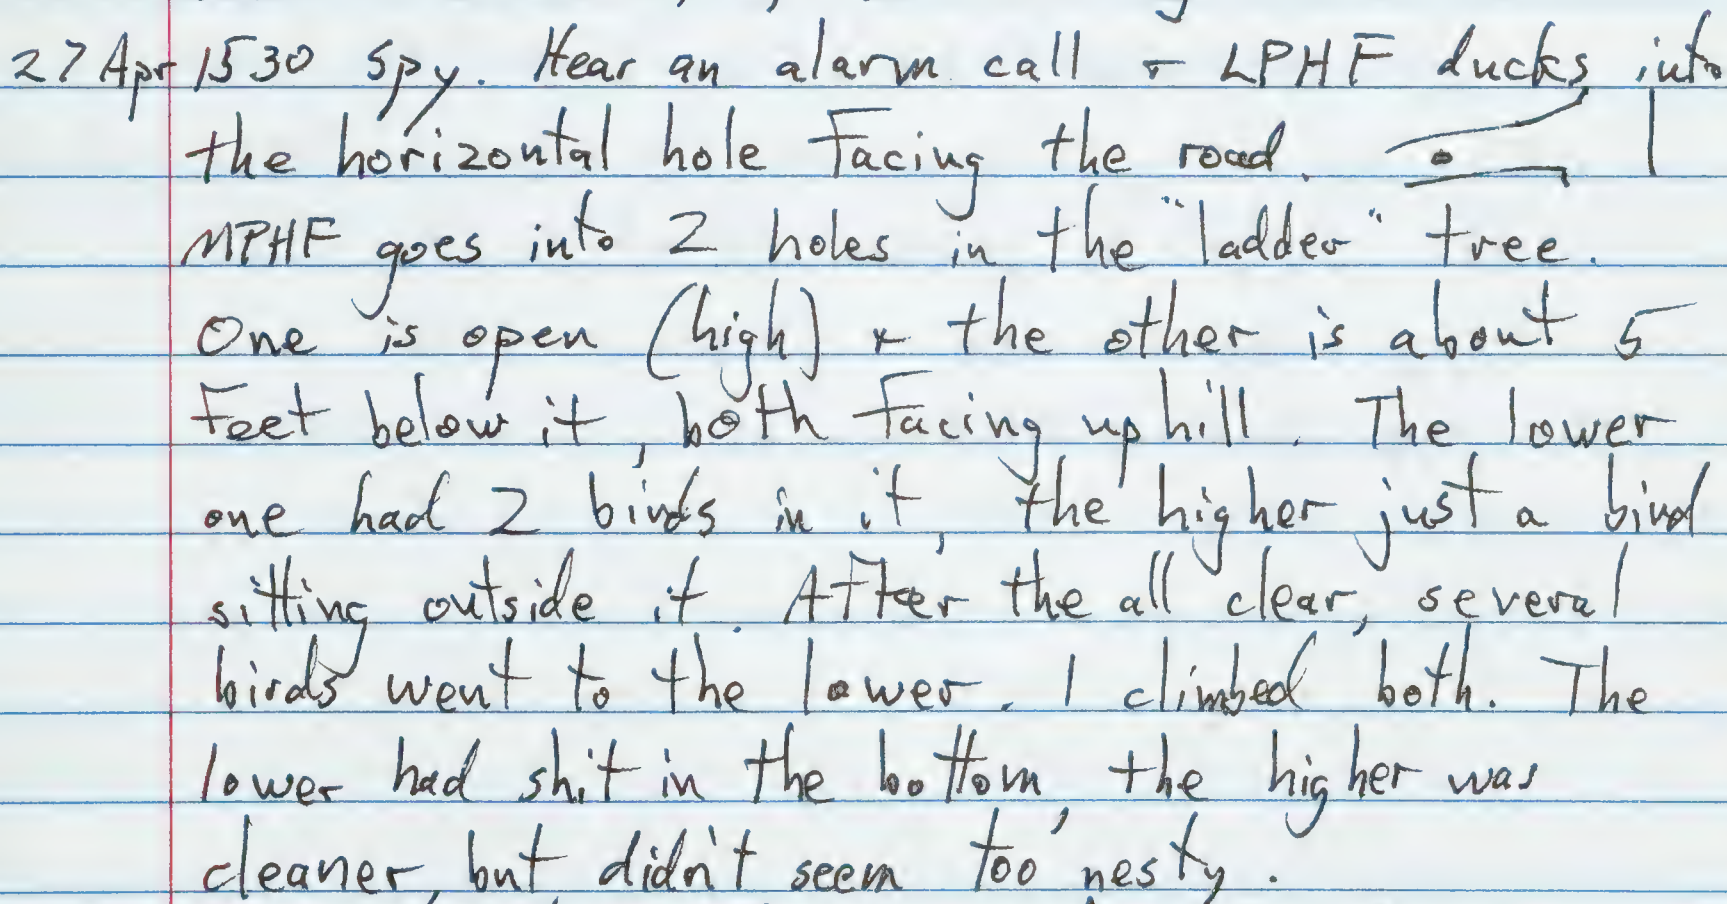 27 Apr 1530 Spy. Hear an alarm call + LPHF ducks into
the horizontal hole facing the road.
MPHF goes into 2 holes in the "ladder" tree.
One is open (high) + the other is about 5
feet below it, both facing uphill. The lower
one had 2 birds in it, the higher just a bird
sitting outside it. After the all clear, several
birds went to the lower. I climbed both. The
lower had shit in the bottom, the higher was
cleaner, but didn't seem too nesty.